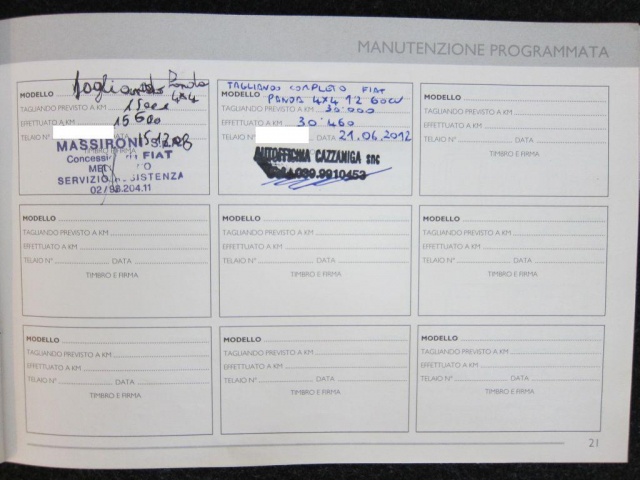 MANUTENZIONE PROGRAMMATA
MODELLO Tagliando Panda
4x4
TAGLIANDO PREVISTO A KM 15000
EFFETTUATO A KM 15600
TELAIO N° DATA
TIMBRO E FIRMA
MASSIRONI
FIAT
SERVIZIO
02/98.204.11
TAGLIANDO COMPLETO FIAT
MODELLO PANDA 4X4 1.2 60CV
TAGLIANDO PREVISTO A KM 30.000
EFFETTUATO A KM 30.460
TELAIO N° DATA 21.06.2012
AUTOFFICINA CAZZANIGA snc
039.9910453
MODELLO
TAGLIANDO PREVISTO A KM
EFFETTUATO A KM
TELAIO N° DATA
TIMBRO E FIRMA
MODELLO
TAGLIANDO PREVISTO A KM
EFFETTUATO A KM
TELAIO N° DATA
TIMBRO E FIRMA
MODELLO
TAGLIANDO PREVISTO A KM
EFFETTUATO A KM
TELAIO N° DATA
TIMBRO E FIRMA
MODELLO
TAGLIANDO PREVISTO A KM
EFFETTUATO A KM
TELAIO N° DATA
TIMBRO E FIRMA
MODELLO
TAGLIANDO PREVISTO A KM
EFFETTUATO A KM
TELAIO N° DATA
TIMBRO E FIRMA
MODELLO
TAGLIANDO PREVISTO A KM
EFFETTUATO A KM
TELAIO N° DATA
TIMBRO E FIRMA
MODELLO
TAGLIANDO PREVISTO A KM
EFFETTUATO A KM
TELAIO N° DATA
TIMBRO E FIRMA
21